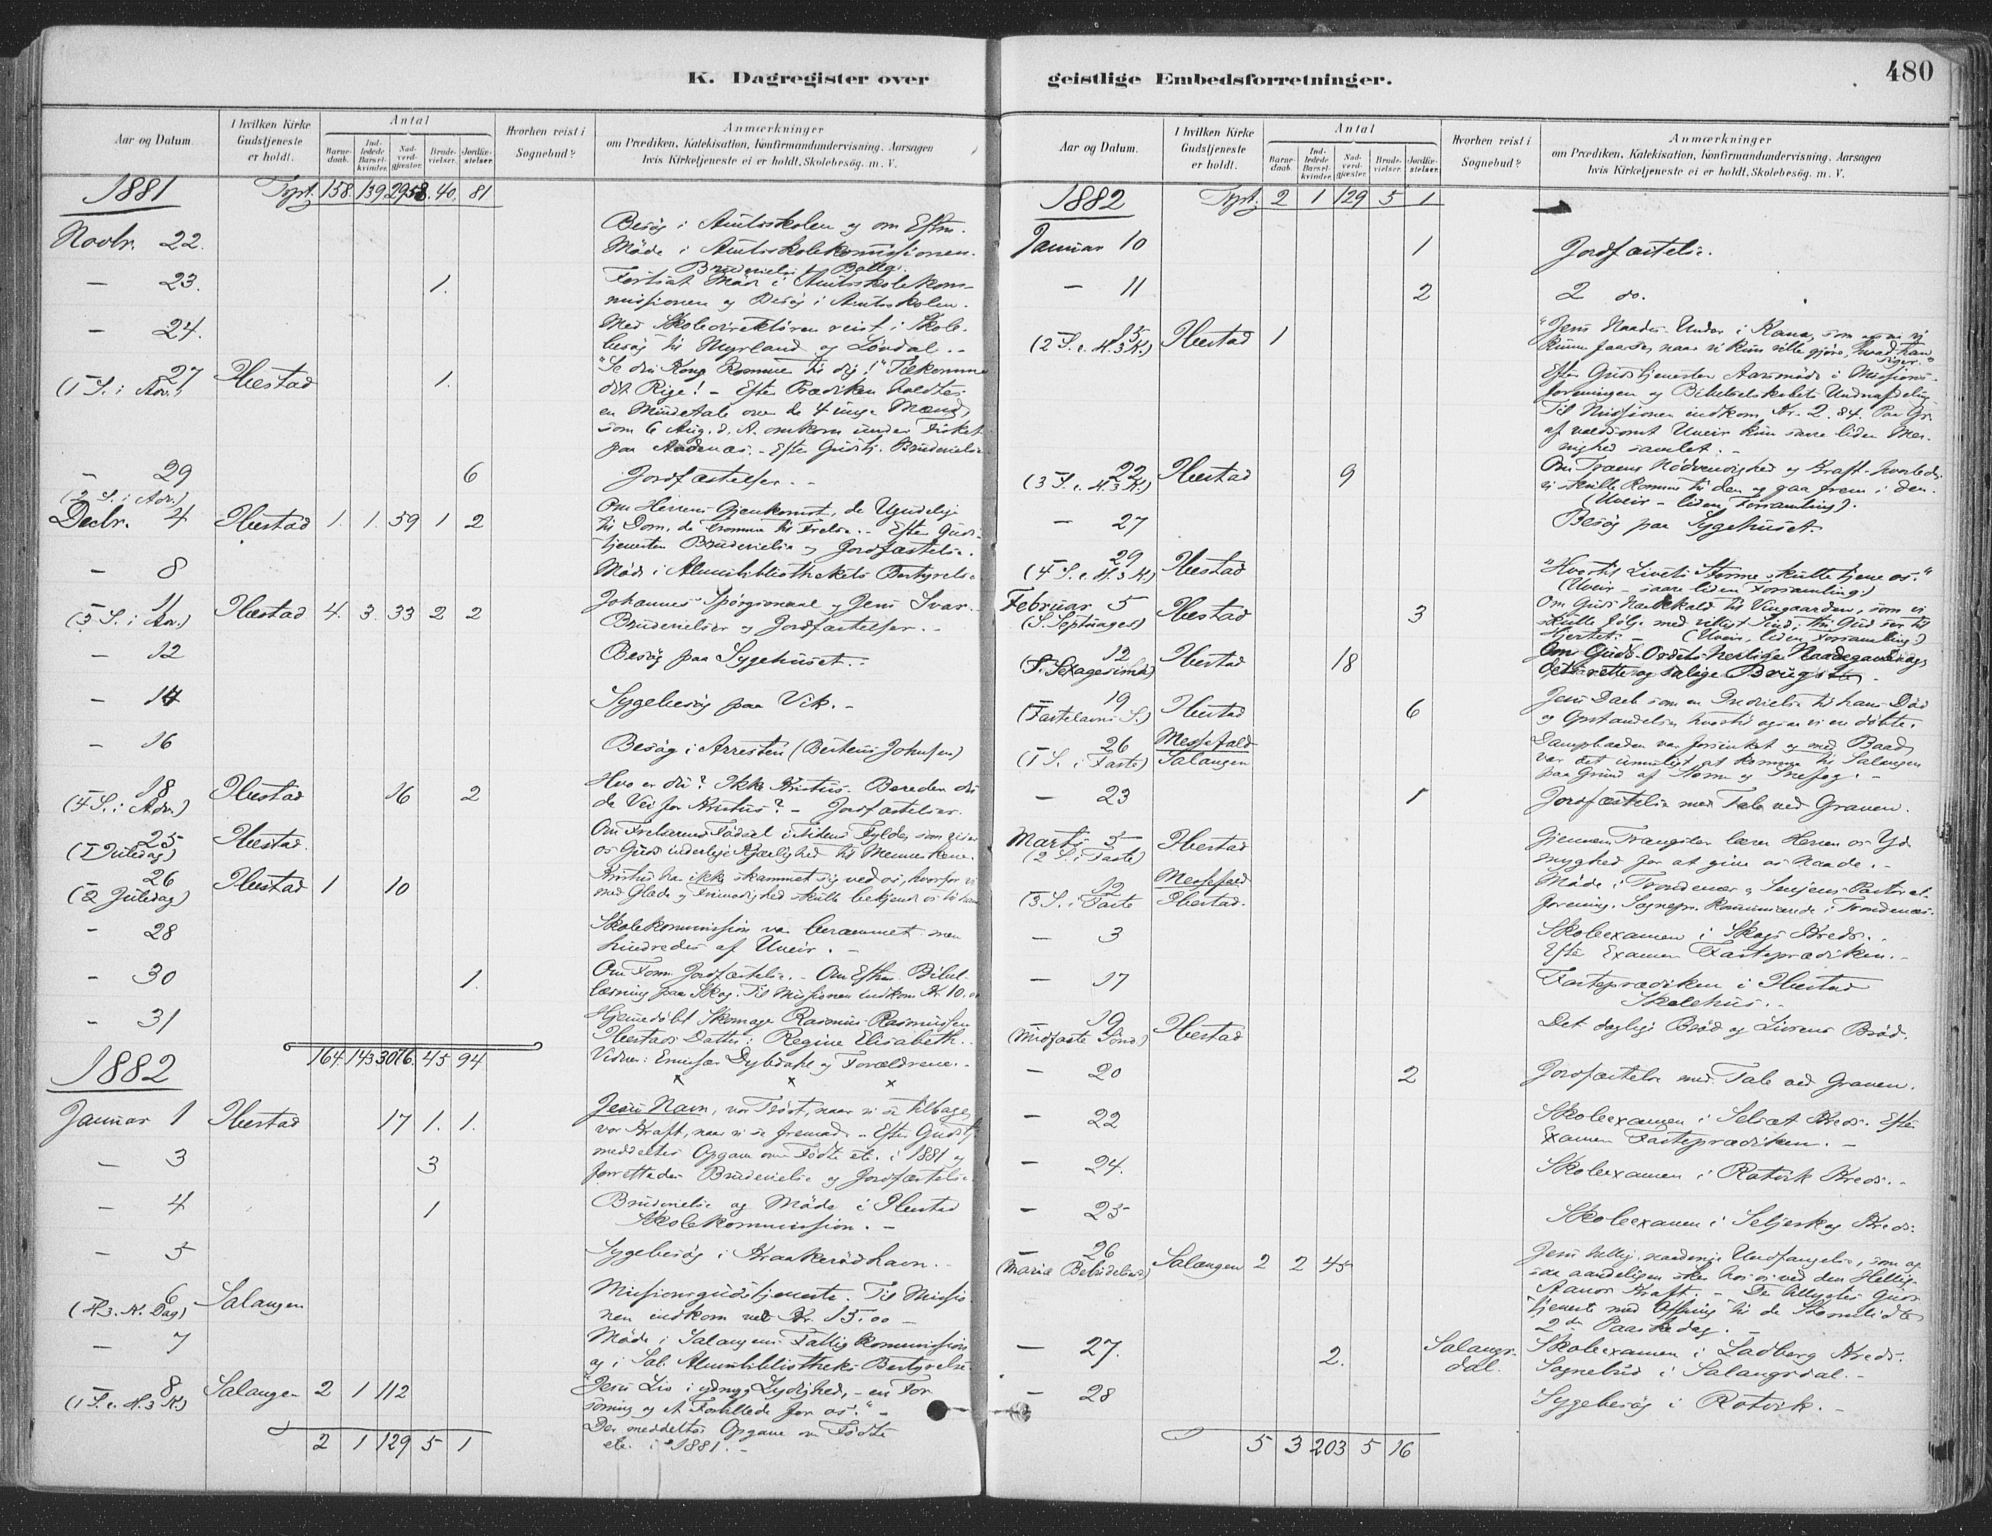 K. Dagregister over
Aar og Datum.
I hvilken Kirke Gudstjeneste er holdt.
Antal
Barnedaab.
Indledede Barselkvinder.
Nadverdgjester.
Brudevielser.
Jordfæstelser.
Hvorhen reist i Sognebud?
Anmærkninger
om Prædiken, Katekisation, Konfirmandundervisning, Aarsagen
hvis Kirketjeneste ei er holdt, Skolebesøg. m. V.
1881 158 139 2958. 40. 81
Novbr. 22. Besøg i Amtsskolen og om Efterm.
Møde i Amtsskolekommissionen.
Brudevielse
- 23. 1. Fortsat Møde i Amtsskolekom-
missionen og Besøg i Amtsskolen.
- 24. Med Skoledirektøren reist i Skole-
besøg til Myrland og Løvdal. -
27 Ibestad 1. "Se din Konge kommer til dig!" Tilkomme
(1 S. i Adv.) dit Rige! - Efter Prædiken holdtes
en Mindetale over de 4 unge Mænd,
som 6 Aug. d. A. omkom under Fisket
paa Andenæs. - Efter Gudstj. Brudevielse
- 29 6 Jordfæstelser. -
(2 S. i Adv.)
Decbr. 4 Ibestad 1. 1. 59 1 2 Om Herrens Gjenkomst, de Ugudelige
til Dom, de Fromme til Frelse. - Efter Guds-
tjenesten Brudevielse og Jordfæstelse.
- 8 Møde i Almuebibliothekets Bestyrelse
11 Ibestad 4. 3. 33 2 2 Johannes Spørgsmaal og Jesu Svar.
(3 S. i Adv.) Brudevielser og Jordfæstelser. -
- 12 Besøg paa Sygehuset. -
- 14 Sygebesøg paa Vik. -
- 16 Besøg i Arresten (Bertheus Johnsen)
18 Ibestad 16 2 Hvo er du? Ikke Kristus. Bereder du
(4 S. i Adv.) da Vei for Kristus? - Jordfæstelser.
25 Ibestad. Om Frelserens Fødsel i Tidens Fylde, som viser
(1 Juledag) os Guds inderlige Kjærlighed til Menneskene.
26 Ibestad 1 10 Kristus har ikke skammet sig ved os, hvorfor vi
(2 Juledag) med Glæde og Frimodighed skulle bekjende os til ham
- 28 Skolekommission var berammet men
hindredes af Uveir. -
- 30 1. Om Form. Jordfæstelse. - Om Efterm. Bibel-
læsning paa Skog. Til Missionen indkom Kr. 10.
- 31 Hjemmedøbt Skomager Rasmus Rasmussen
Ibestads Datter: Regine Elisabeth.
164. 143 3076. 45 94 Vidner: Dybdahl og Forældrene. -
1882
Januar 1 Ibestad 17 1. 1. Jesu Navn, vor Trøst, naar vi se tilbage,
vor Kraft, naar vi se fremad. - Efter Gudstj.
meddeltes Opgave over Fødte etc. i 1881 og
- 3 3 forrettedes Brudevielse og Jordfæstelse
- 4 1 Brudevielse og Møde i Ibestad
Skolekommission. -
- 5 Sygebesøg i Kraakerødhavn. -
6 Salangen Missionsgudstjeneste. Til Missio-
(H. 3. K. Dag) nen indkom Kr. 15.00 -
- 7 Møde i Salangens Fattigkommission
og i Sal. Almuebibliotheks Bestyrelse
8 Salangen 2 1 112 "Jesu Liv i ydmyg Lydighed, - en For-
(1 S. e. H. 3 K.) soning og et Forbillede for os." -
Der meddeltes Opgave om Fødte
2 1 129 5 1 etc. i 1881. -
geistlige Embedsforretninger.
480
Aar og Datum.
I hvilken Kirke Gudstjeneste er holdt.
Antal
Barnedaab.
Indledede Barselkvinder.
Nadverdgjester.
Brudevielser.
Jordfæstelser.
Hvorhen reist i Sognebud?
Anmærkninger
om Prædiken, Katekisation, Konfirmandundervisning, Aarsagen
hvis Kirketjeneste ei er holdt, Skolebesøg. m. V.
1882 2 1 129 5 1
Januar 10 1 Jordfæstelse.
- 11 2 2 do.
15 Ibestad 1 "Jesu Naades Under i Kana, som ogsaa vi
(2 S. e. H. 3 K.) kunne faa se, naar vi kun ville gjøre, hvad han
siger."
Efter Gudstjenesten Aarsmøde i Missions-
foreningen og Bibelselskabets Underafdeling.
Til Missionen indkom Kr. 2.84. Paa Gr.
af voldsomt Uveir kun saare liden Me-
nighed samlet. -
22 Ibestad 9 Om Troens Nødvendighed og Kraft, hvorledes
(3 S. e. H. 3 K.) vi skulle komme til den og gaa frem i den.
(Uveir - liden Forsamling).
- 27 Besøg paa Sygehuset.
29 Ibestad "Hvortil Livets Storme skulle tjene os."
(4 S. e. H. 3 K.) (Uveir - saare liden Forsamling.)
Februar 5 Ibestad 3 Om Guds Naadekald til Vingaarden, som vi
(S. Septuages.) skulle følge med villigt Sind, thi Gud ser til
Hjertet. - (Uveir, liden Forsamling.)
12 Ibestad 18 Om Guds Ords herlige Naadegave og
(S. Sexagesima) dets rette og salige Brug. -
19 Ibestad 6 Jesu Daab som en Indvielse til hans Død
(Fastelavns S.) og Opstandelse, hvortil ogsaa vi ere døbte.
26 Messefald Dampbaaden var forsinket og med Baad
(1 S. i Faste) Salangen var det umuligt at komme til Salangen
paa Grund af Storm og Snefog. -
- 23 1 Jordfæstelse med Tale ved Graven.
Marts 5 Ibestad Gjennem Trængsler lærer Herren os Yd-
(2 S. i Faste) myghed for at give os Naade. -
12 Messefald Møde i Trondenæs og Senjens Pastoral-
(3 S. i Faste Ibestad. forening. Sognepr. kommuniserede i Trondenæs.
- 3 Skoleexamen i Skogs Kreds. -
Efter Examen Fasteprædiken. -
- 17 Fasteprædiken i Ibestad
Skolehus. -
19 Ibestad Det daglige Brød og Livsens Brød.
(Midfaste Sønd.)
- 20 2 Jordfæstelse med Tale ved Graven.
- 22 Skoleexamen i Selsæt Kreds. Efter
Examen Fasteprædiken. -
- 24. Skoleexamen i Rotvik Kreds. -
- 25 Skoleexamen i Seljeskog Kreds.
26 Salangen 2 2 45 Jesu hellige, naaderige Undfangelse, som og-
(Mariæ Bebudelsesd.) saa aandeligen sker hos os ved den Hellig-
Aands Kraft. - Der tillystes Guds-
tjeneste med Offring til de Stormlidte
2den Paaskedag. -
- 27. 2. Salangs-
dal. Skoleexamen i Ladberg Kreds.
Sognebud i Salangsdal. -
- 28 Sygebesøg i Rotvik. -
5 3 203 5 16